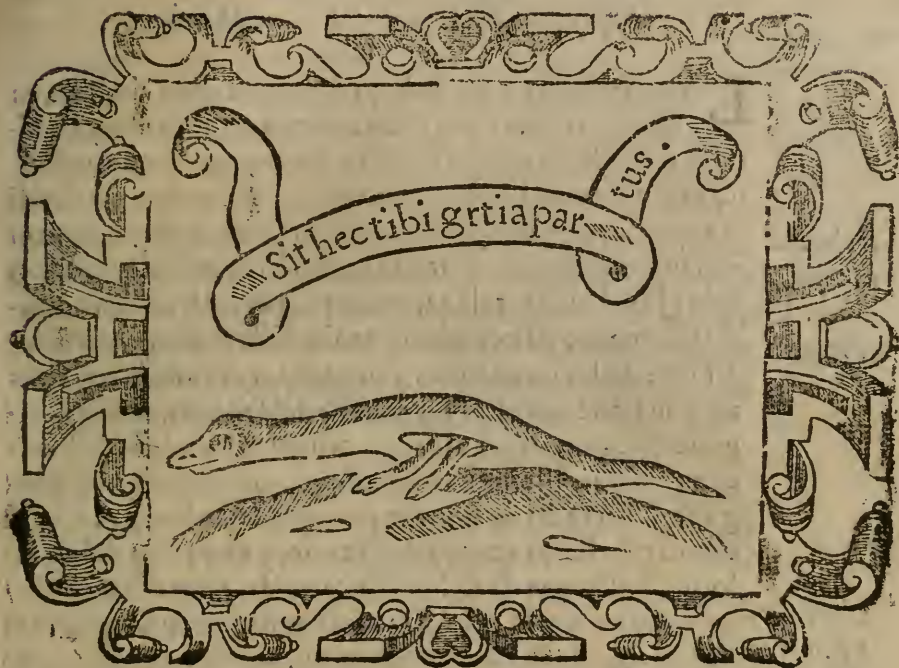 Sit hec tibi grtia par
tus.